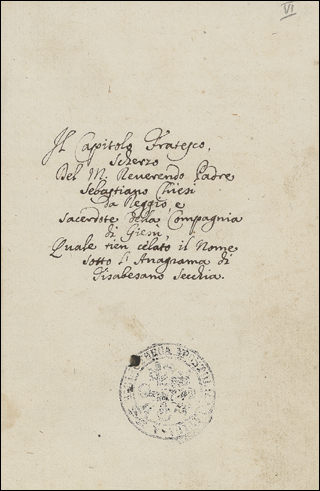 VI
Il Capitolo Fratesco,
Scherzo
Del M. Reverendo Padre
Sebastiano Chiesi
da Reggio, e
Sacerdote della Compagnia
di Giesù,
Quale tien celato il Nome
sotto l'Anagrama di
Fisabesano Secchia.